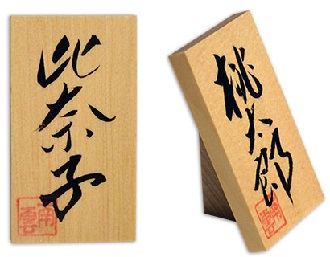 此奈子
桃太郎